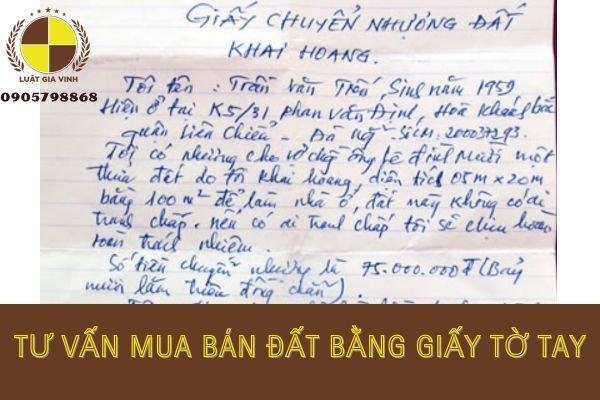 LUẬT GIA VINH
0905798868
GIẤY CHUYỂN NHƯỢNG ĐẤT
KHAI HOANG.
Tôi tên : Trần Văn Trối, Sinh năm 1959
Hiện ở tại K5/31 Phan Văn Định, Hoà Khánh bắc
quận liên Chiểu - Đà nẵng SICM: 200037293.
Tôi có nhường cho vợ chồng ông lê đình Mười một
thửa đất do tôi khai hoang, diện tích 05m x 20m
bằng 100 m² để làm nhà ở, đất này không có ai
tranh chấp. nếu có ai tranh chấp tôi sẽ chịu hoàn
toàn trách nhiệm.
Số tiền chuyển nhượng là 75.000.000đ (Bảy
mươi lăm triệu đồng chẵn).
TƯ VẤN MUA BÁN ĐẤT BẰNG GIẤY TỜ TAY